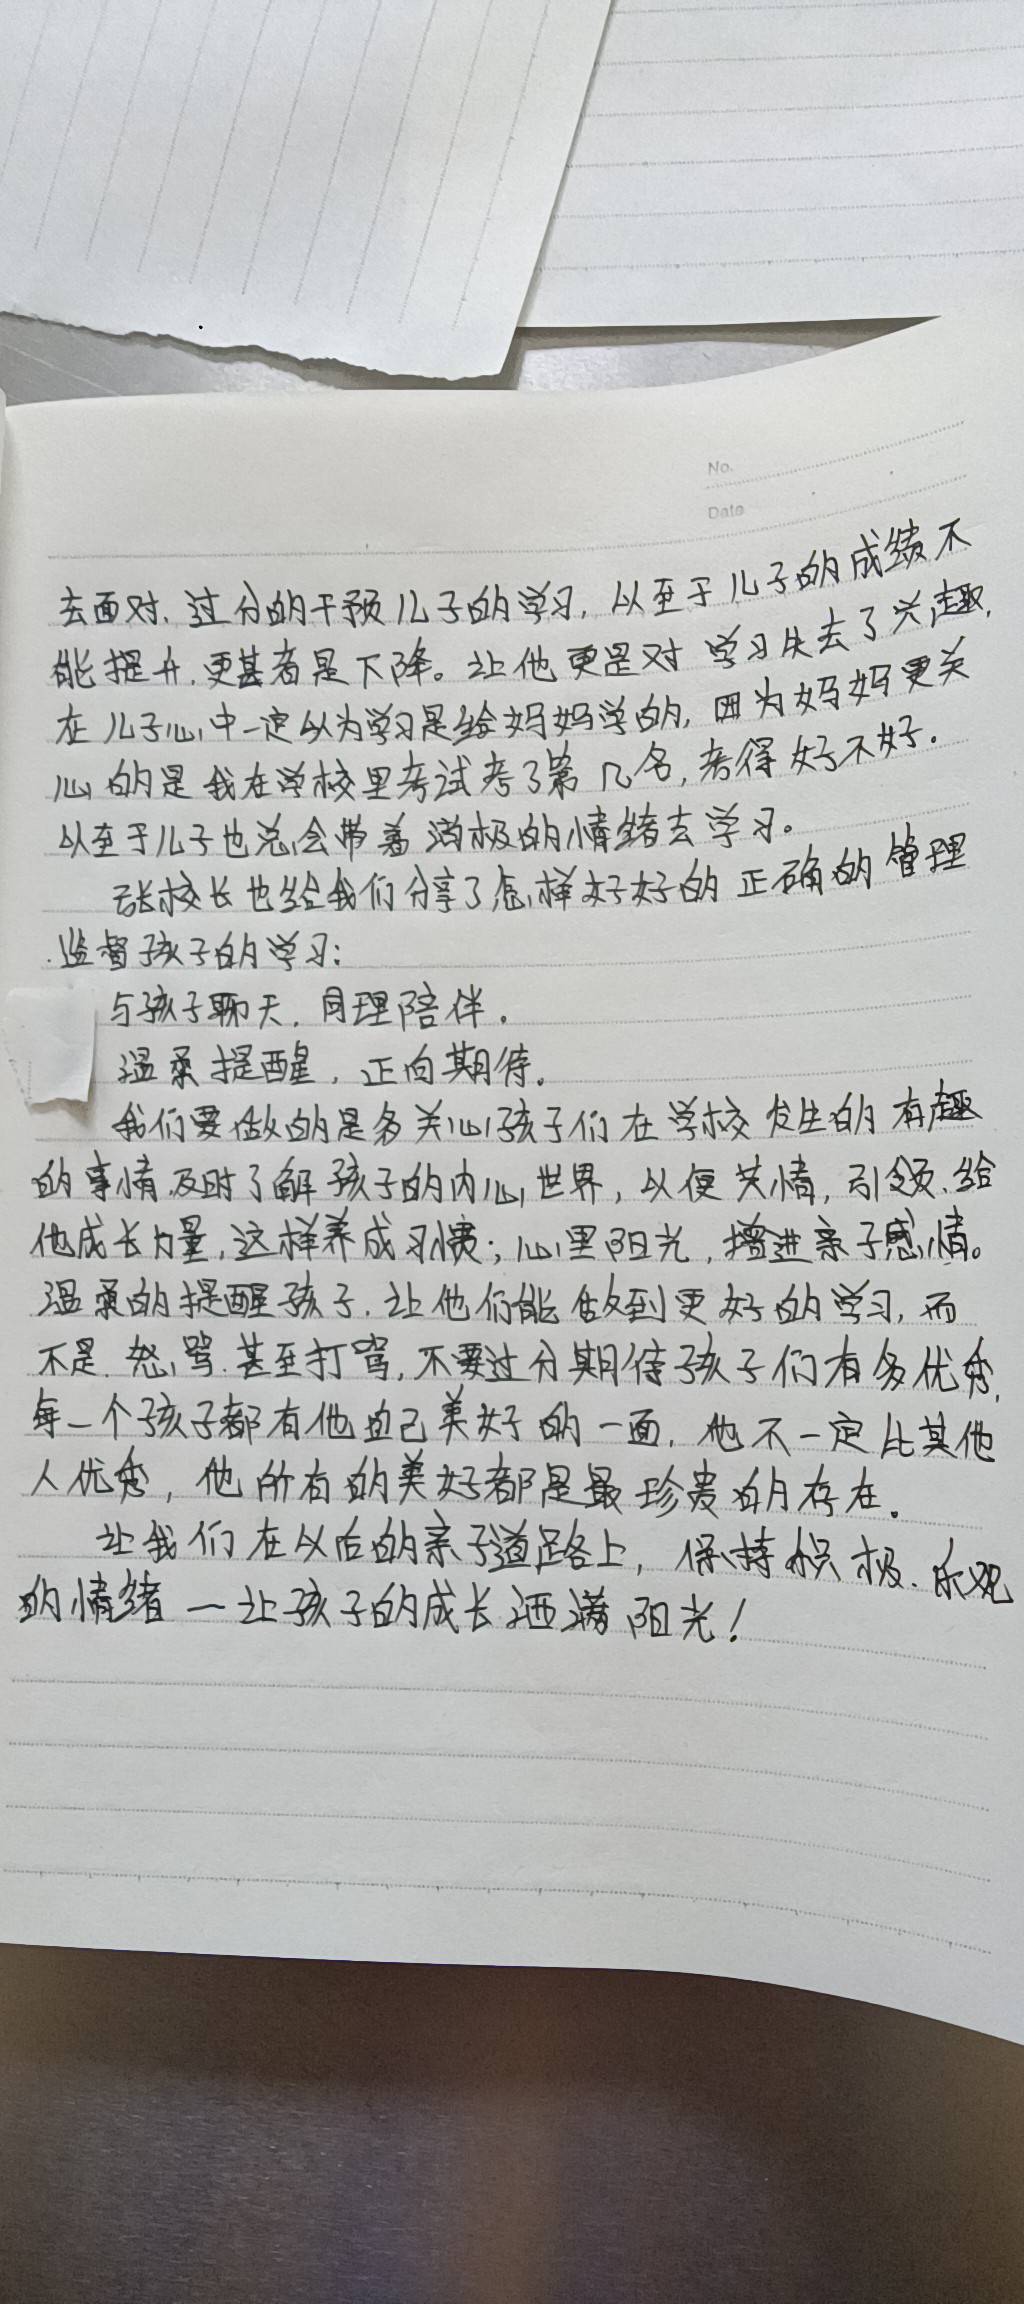 No.
Date
去面对,过分的干预儿子的学习,以至于儿子的成绩不
能提升,更甚者是下降。让他更是对学习失去了兴趣,
在儿子心中一定以为学习是给妈妈学的,因为妈妈更关
心的是我在学校里考试考了第几名,考得好不好.
以至于儿子也总会带着消极的情绪去学习。
张校长也给我们分享了怎样好好的正确的管理
监督孩子的学习:
与孩子聊天,同理陪伴.
温柔提醒,正向期待。
我们要做的是多关心孩子们在学校发生的有趣
的事情,及时了解孩子的内心世界,以便共情,引领.给
他成长力量,这样养成习惯;心里阳光,增进亲子感情。
温柔的提醒孩子.让他们能做到更好的学习,而
不是.怒骂.甚至打骂,不要过分期待孩子们有多优秀,
每一个孩子都有他自己美好的一面,他不一定比其他
人优秀,他所有的美好都是最珍贵的存在。
让我们在以后的亲子道路上,保持积极.乐观
的情绪一让孩子的成长洒满阳光!